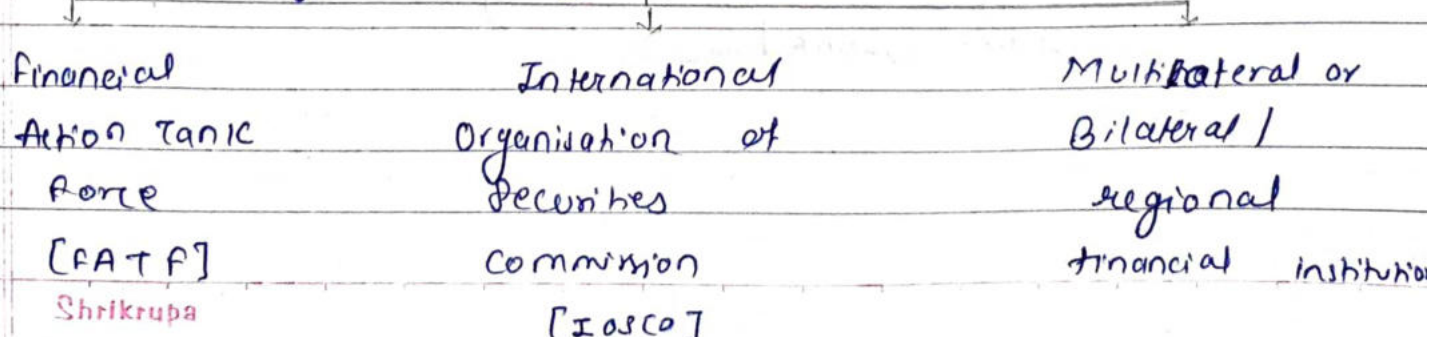 Financial
Action Tank
Force
[FATF]
International
Organisation of
Securities
Commission
[IOSCO]
Multilateral or
Bilateral /
regional
financial institution
Shrikrupa